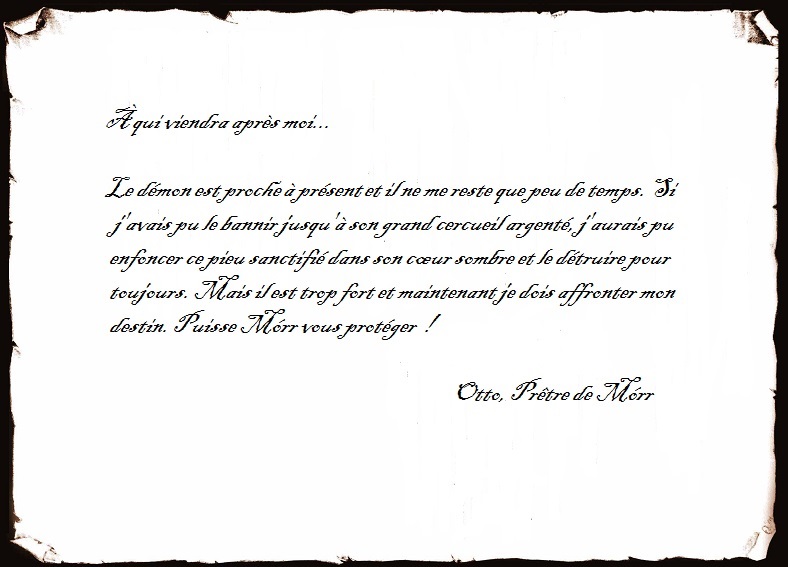 À qui viendra après moi...
Le démon est proche à présent et il ne me reste que peu de temps. Si
j'avais pu le bannir jusqu'à son grand cercueil argenté, j'aurais pu
enfoncer ce pieu sanctifié dans son cœur sombre et le détruire pour
toujours. Mais il est trop fort et maintenant je dois affronter mon
destin. Puisse Mórr vous protéger !
Otto, Prêtre de Mórr